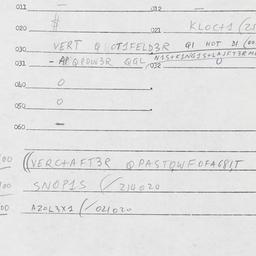 011 — 012 —
020 # 021 KLOC+1 (25
030 VERT Q OT1FELD3R QI HOT DI (00
031 - APQPDW3R QGL 032 N1S+K1NG1S+LAJFT3RM
0
040 0
050 0
060 —
00 ((VERC+AFT3R QPASTQWFOFAC8IT
00 SNOP1S (/214020
00 AZOL3X1 (/021020